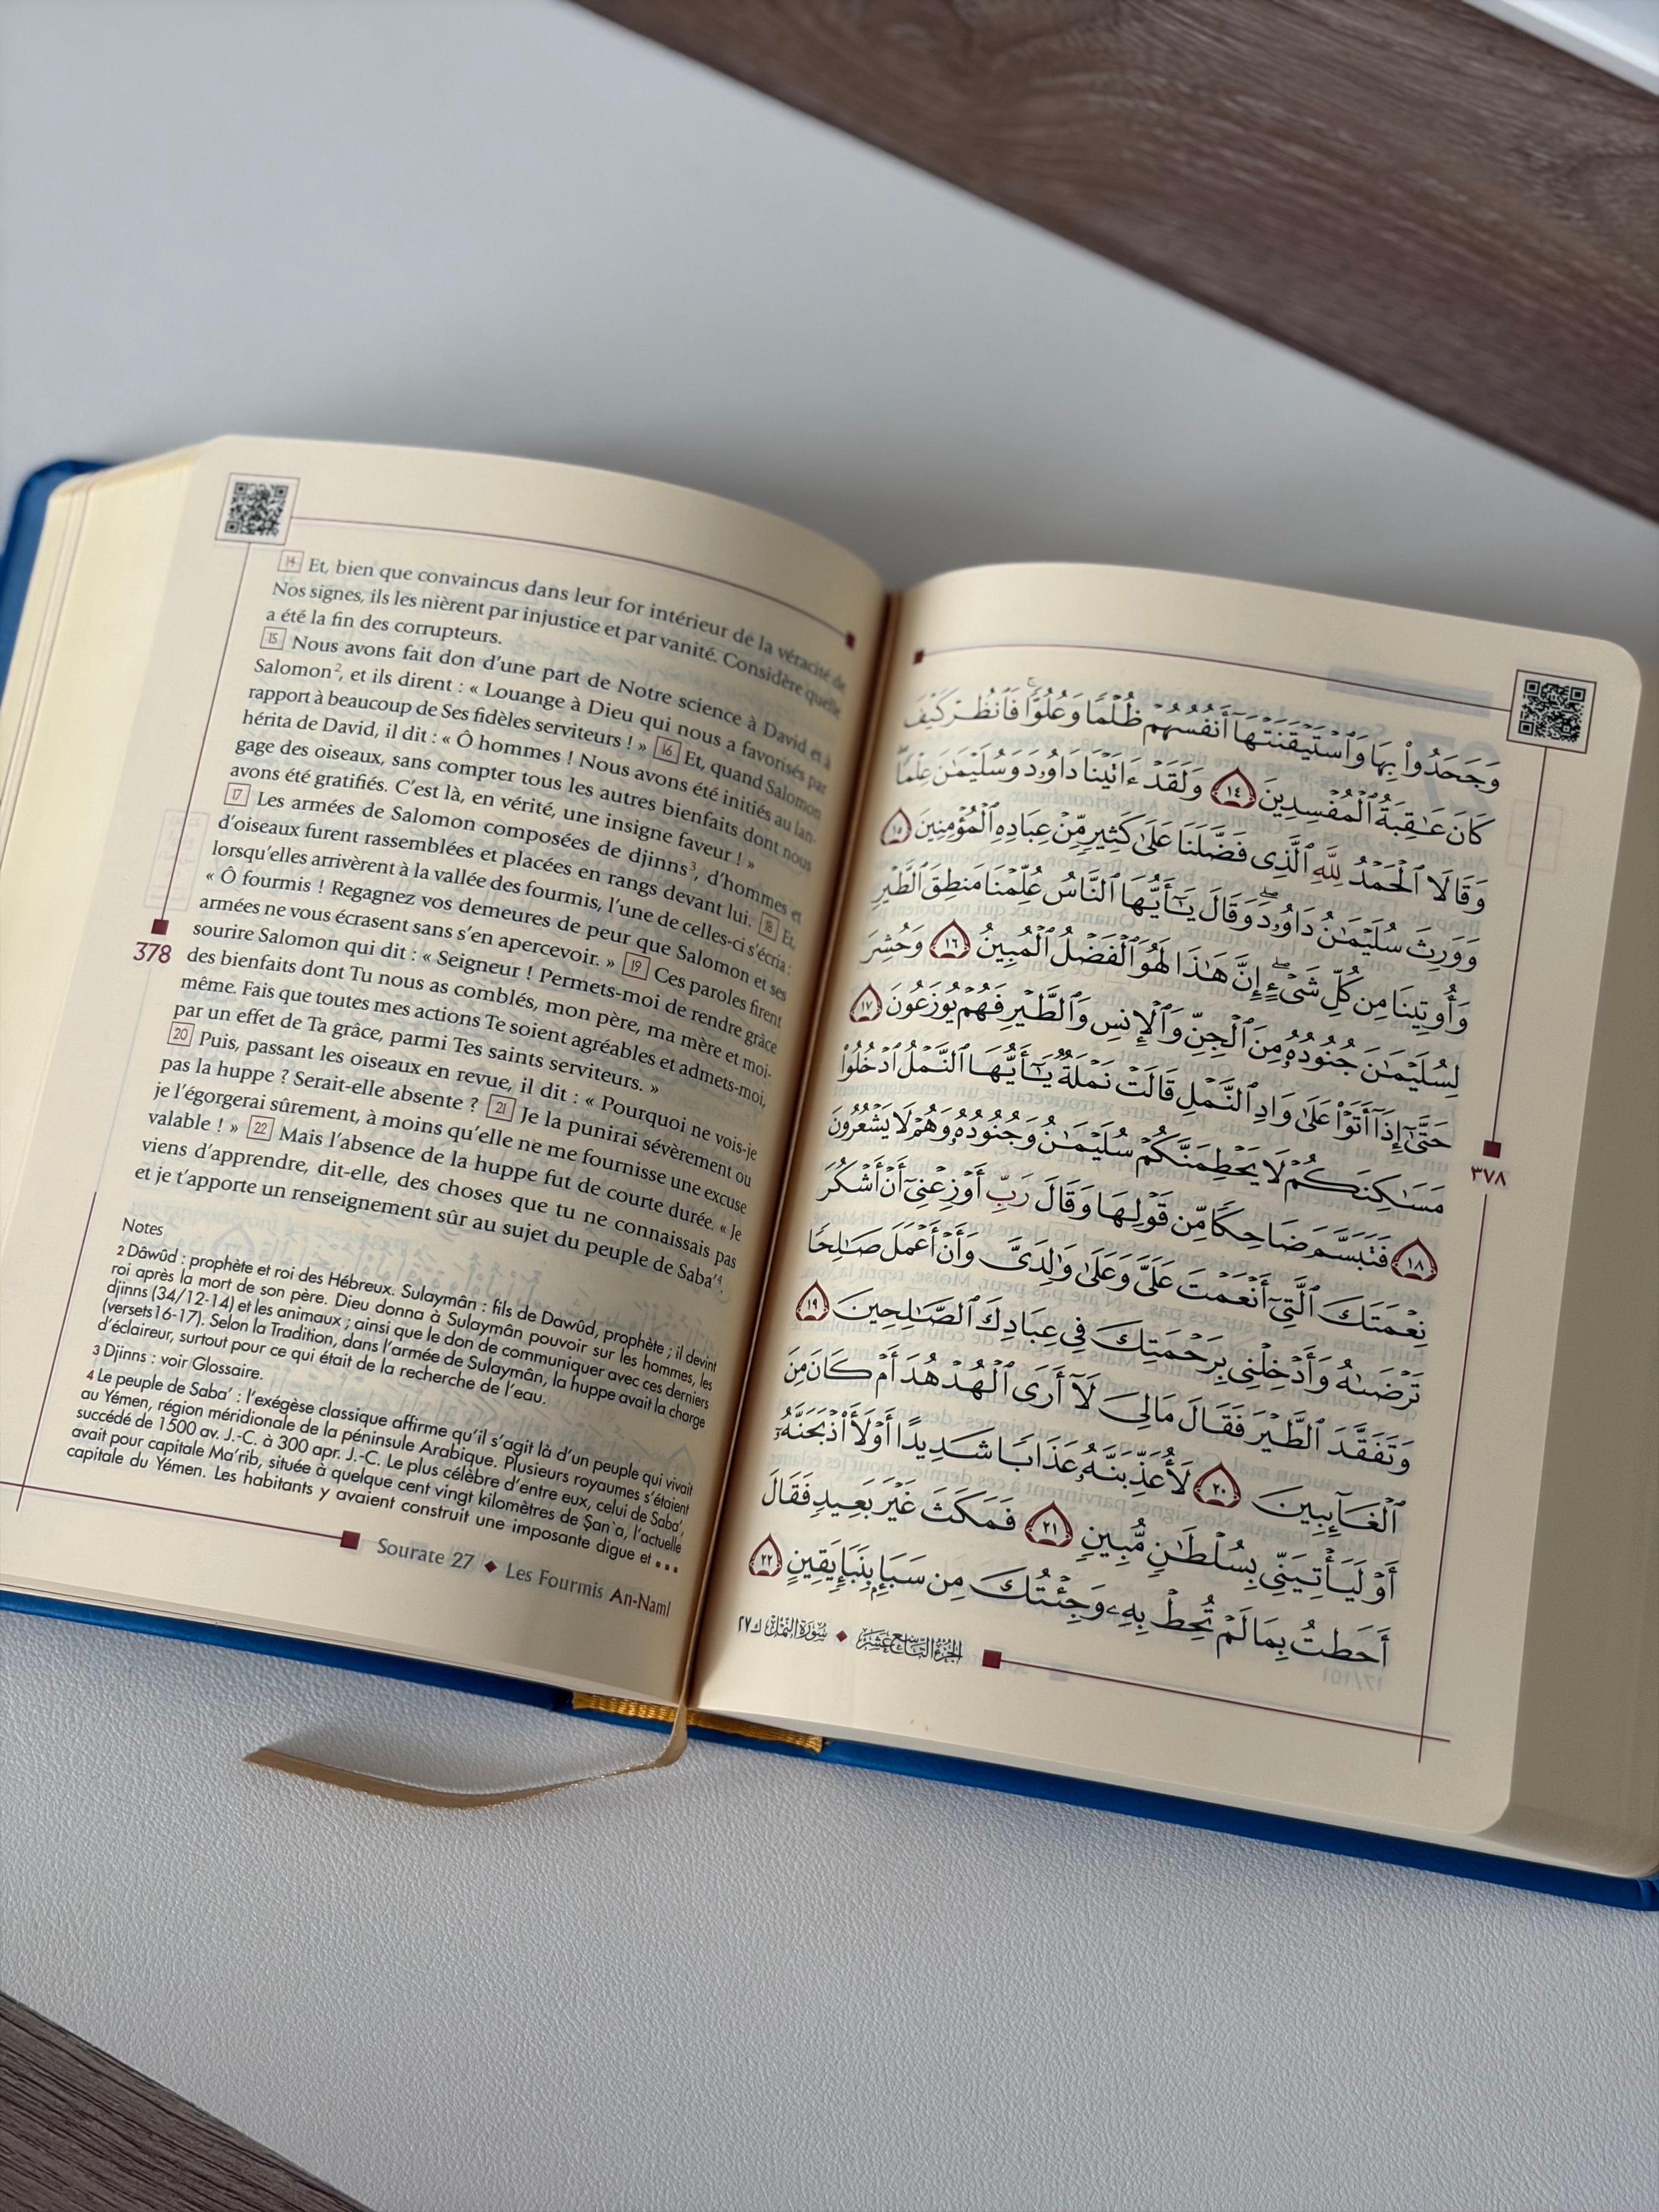 14 Et, bien que convaincus dans leur for intérieur de la véracité de
Nos signes, ils les nièrent par injustice et par vanité. Considère quelle
a été la fin des corrupteurs.
15 Nous avons fait don d'une part de Notre science à David et à
Salomon², et ils dirent : « Louange à Dieu qui nous a favorisés par
rapport à beaucoup de Ses fidèles serviteurs ! » 16 Et, quand Salomon
hérita de David, il dit : « Ô hommes ! Nous avons été initiés au lan-
gage des oiseaux, sans compter tous les autres bienfaits dont nous
avons été gratifiés. C'est là, en vérité, une insigne faveur ! »
17 Les armées de Salomon composées de djinns³, d'hommes et
d'oiseaux furent rassemblées et placées en rangs devant lui. 18 Et,
lorsqu'elles arrivèrent à la vallée des fourmis, l'une de celles-ci s'écria :
« Ô fourmis ! Regagnez vos demeures de peur que Salomon et ses
armées ne vous écrasent sans s'en apercevoir. » 19 Ces paroles firent
sourire Salomon qui dit : « Seigneur ! Permets-moi de rendre grâce
des bienfaits dont Tu nous as comblés, mon père, ma mère et moi-
même. Fais que toutes mes actions Te soient agréables et admets-moi,
par un effet de Ta grâce, parmi Tes saints serviteurs. »
20 Puis, passant les oiseaux en revue, il dit : « Pourquoi ne vois-je
pas la huppe ? Serait-elle absente ? 21 Je la punirai sévèrement ou
je l'égorgerai sûrement, à moins qu'elle ne me fournisse une excuse
valable ! » 22 Mais l'absence de la huppe fut de courte durée. « Je
viens d'apprendre, dit-elle, des choses que tu ne connaissais pas
et je t'apporte un renseignement sûr au sujet du peuple de Saba'⁴.
378
Notes
2 Dâwûd : prophète et roi des Hébreux. Sulaymân : fils de Dawûd, prophète ; il devint
roi après la mort de son père. Dieu donna à Sulaymân pouvoir sur les hommes, les
djinns (34/12-14) et les animaux ; ainsi que le don de communiquer avec ces derniers
(versets16-17). Selon la Tradition, dans l'armée de Sulaymân, la huppe avait la charge
d'éclaireur, surtout pour ce qui était de la recherche de l'eau.
3 Djinns : voir Glossaire.
4 Le peuple de Saba' : l'exégèse classique affirme qu'il s'agit là d'un peuple qui vivait
au Yémen, région méridionale de la péninsule Arabique. Plusieurs royaumes s'étaient
succédé de 1500 av. J.-C. à 300 apr. J.-C. Le plus célèbre d'entre eux, celui de Saba',
avait pour capitale Ma'rib, située à quelque cent vingt kilomètres de Ṣan`a, l'actuelle
capitale du Yémen. Les habitants y avaient construit une imposante digue et ...
Sourate 27 ◆ Les Fourmis An-Naml
وَجَحَدُواْ بِهَا وَٱسْتَيْقَنَتْهَآ أَنفُسُهُمْ ظُلْمًا وَعُلُوًّا ۚ فَٱنظُرْ كَيْفَ
كَانَ عَـٰقِبَةُ ٱلْمُفْسِدِينَ ١٤ وَلَقَدْ ءَاتَيْنَا دَاوُۥدَ وَسُلَيْمَـٰنَ عِلْمًا ۖ
وَقَالَا ٱلْحَمْدُ لِلَّهِ ٱلَّذِى فَضَّلَنَا عَلَىٰ كَثِيرٍ مِّنْ عِبَادِهِ ٱلْمُؤْمِنِينَ ١٥
وَوَرِثَ سُلَيْمَـٰنُ دَاوُۥدَ ۖ وَقَالَ يَـٰٓأَيُّهَا ٱلنَّاسُ عُلِّمْنَا مَنطِقَ ٱلطَّيْرِ
وَأُوتِينَا مِن كُلِّ شَىْءٍ ۖ إِنَّ هَـٰذَا لَهُوَ ٱلْفَضْلُ ٱلْمُبِينُ ١٦ وَحُشِرَ
لِسُلَيْمَـٰنَ جُنُودُهُۥ مِنَ ٱلْجِنِّ وَٱلْإِنسِ وَٱلطَّيْرِ فَهُمْ يُوزَعُونَ ١٧
حَتَّىٰٓ إِذَآ أَتَوْاْ عَلَىٰ وَادِ ٱلنَّمْلِ قَالَتْ نَمْلَةٌ يَـٰٓأَيُّهَا ٱلنَّمْلُ ٱدْخُلُواْ
مَسَـٰكِنَكُمْ لَا يَحْطِمَنَّكُمْ سُلَيْمَـٰنُ وَجُنُودُهُۥ وَهُمْ لَا يَشْعُرُونَ
١٨ فَتَبَسَّمَ ضَاحِكًا مِّن قَوْلِهَا وَقَالَ رَبِّ أَوْزِعْنِىٓ أَنْ أَشْكُرَ
نِعْمَتَكَ ٱلَّتِىٓ أَنْعَمْتَ عَلَىَّ وَعَلَىٰ وَٰلِدَىَّ وَأَنْ أَعْمَلَ صَـٰلِحًا
تَرْضَىٰهُ وَأَدْخِلْنِى بِرَحْمَتِكَ فِى عِبَادِكَ ٱلصَّـٰلِحِينَ ١٩
وَتَفَقَّدَ ٱلطَّيْرَ فَقَالَ مَا لِىَ لَآ أَرَى ٱلْهُدْهُدَ أَمْ كَانَ مِنَ
ٱلْغَآئِبِينَ ٢٠ لَأُعَذِّبَنَّهُۥ عَذَابًا شَدِيدًا أَوْ لَأَاْذْبَحَنَّهُۥٓ
أَوْ لَيَأْتِيَنِّى بِسُلْطَـٰنٍ مُّبِينٍ ٢١ فَمَكَثَ غَيْرَ بَعِيدٍ فَقَالَ
أَحَطتُ بِمَا لَمْ تُحِطْ بِهِۦ وَجِئْتُكَ مِن سَبَإٍۭ بِنَبَإٍ يَقِينٍ ٢٢
٣٧٨
الجزء التاسع عشر ◆ سورة النمل ك ٢٧